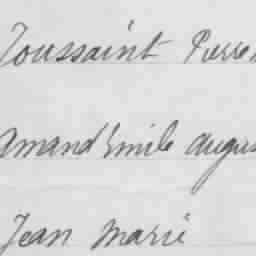 Toussaint Pierre
Amand Emile Augus
Jean Marie